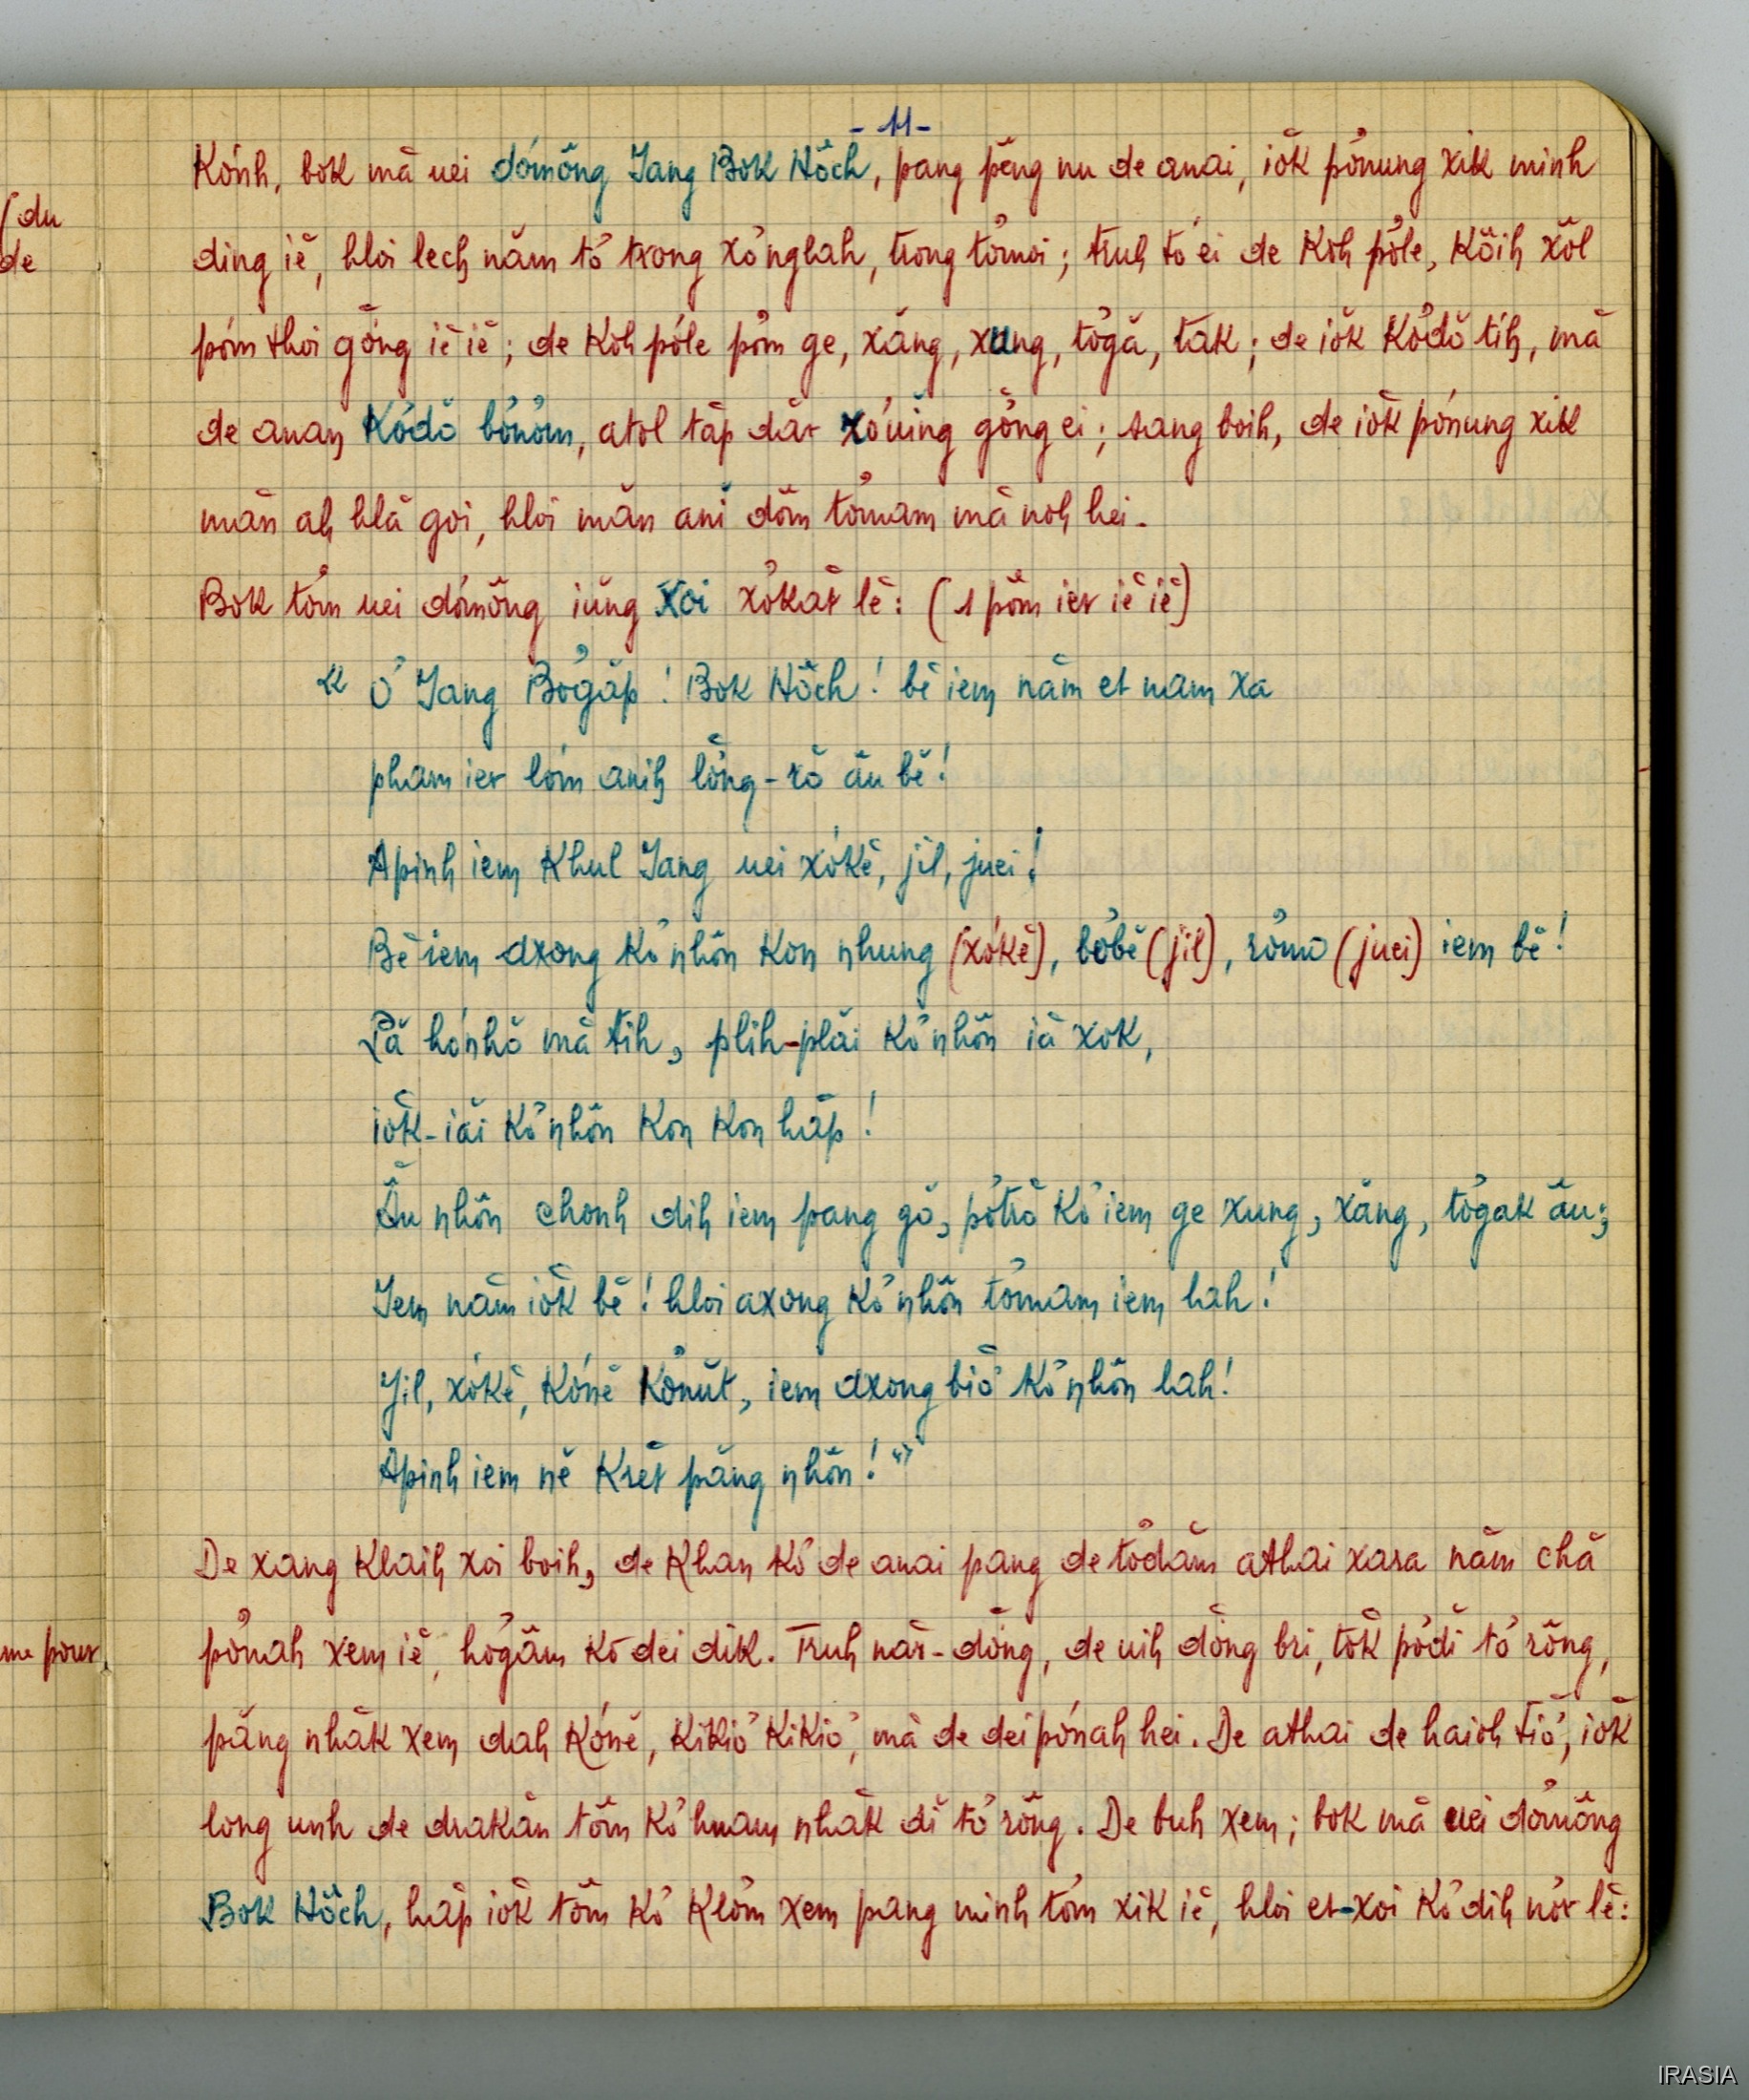 - 11 -
Kơ̆nh, bok mă uei dơmŏng Iang Bok Hŏch, pang pĕng nu de anai, iŏk pơnung xik minh
ding iĕ, hloi lech năm tơ̆ trong xơnglah, trong tơmoi; truh tơ̆ ei de Koh pơ̆le, Kŏih xŏl
pơm thoi gŏng iĕ iĕ; de Koh pơle pơm ge, xăng, xung, tơgă, tăk; de iŏk Kơ̆dŏ tih, mă
de anan Kơ̆dŏ bơnơm, atol tăp dăr xơuing gŏng ei; sang boih, de iŏk pơnung xik
măn ah hlă goi, hloi măn ani dŏm tơmam mă noh hei.
Bok tơm uei dơmŏng iŭng xoi xơkăt lĕ: (1 pŏm ier iĕ iĕ)
« Ơ̆ Iang Bơgăp! Bok Hŏch! bĕ iem năm et năm xa
pham ier lơm anih lŏng-rŏ ău bĕ!
Apinh iem Khul Iang uei xơkĕ, jil, juei!
Bĕ iem axong kơ̆ nhŏn kon nhung (xơkĕ), bơbĕ (jil), rơmo (juei) iem bĕ!
Pă hơnhŏ mă tih, plih-plăi kơ̆ nhŏn iă xok,
iŏk-iăi kơ̆ nhŏn kon kon hăp!
Ău nhŏn chonh dih iem pang gŏ, pơtrŏ kơ̆ iem ge xung, xăng, tơgak ău;
Iem năm iŏk bĕ! hloi axong kơ̆ nhŏn tơmam iem lah!
Jil, xơkĕ, kơnĕ kơnŭt, iem axong biơ̆ kơ̆ nhŏn lah!
Apinh iem nĕ krĕt păng nhŏn! »
De xang klaih xoi boih, de khan kơ̆ de anai pang de tơdăm athai xara năm chă
pơnah xem iĕ, hơgăm kơ dei dik. Truh năr-dŏng, de uih dŏng bri, tŏk pơdĭ tơ̆ rŏng,
păng nhăk xem dah kơnĕ, kikiơ̆ kikiơ̆, mă de dei pơnah hei. De athai de haioh tiơ̆, iŏk
long unh de drakăn tŏm kơ̆ hnam nhăk dĭ tơ̆ rŏng. De buh xem; bok mă uei dơmŏng
Bok Hŏch, hăp iŏk tŏm kơ̆ klơ̆m xem pang minh tơm xik iĕ, hloi et-xoi kơ̆ dih nơr lĕ:
(du
de
me pour
IRASIA